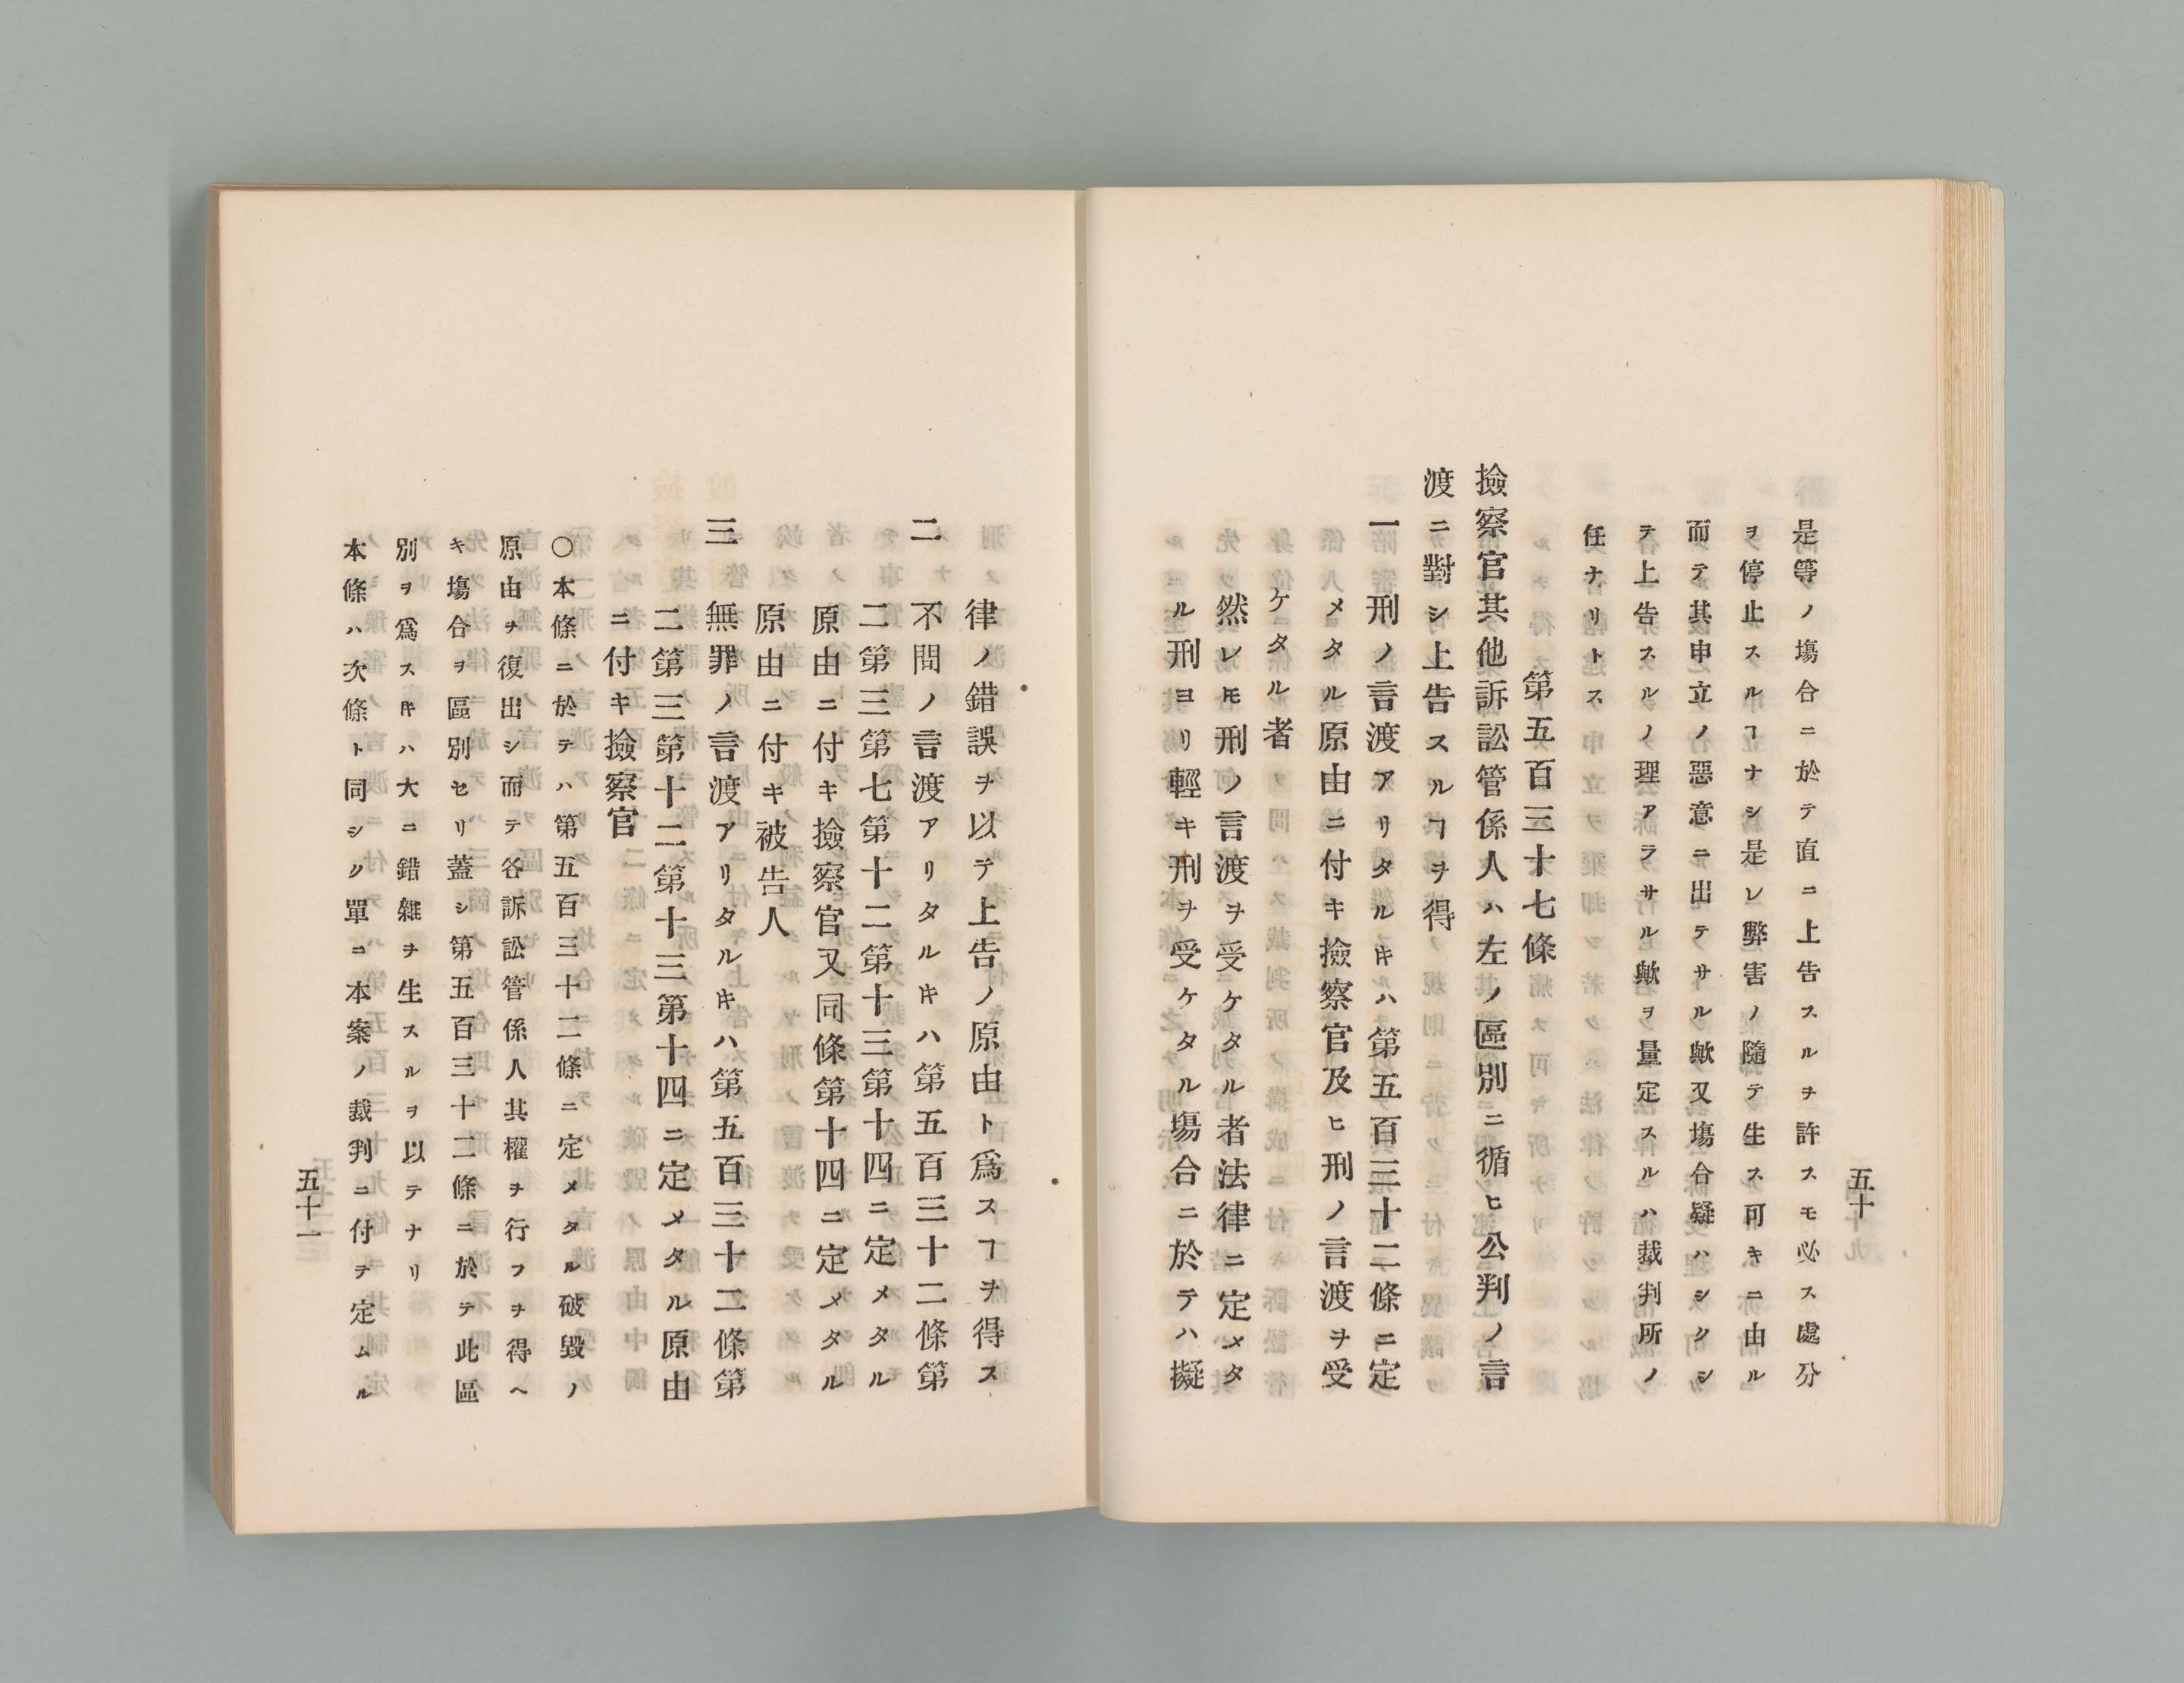 五十
是等ノ塲合ニ於テ直ニ上告スルヲ許スモ必ス處分
ヲ停止スルヿナシ是レ弊害ノ隨テ生ス可キニ由ル
而テ其申立ノ惡意ニ出テサル歟又塲合疑ハシクシ
テ上告スルノ理アラサル歟ヲ量定スルハ裁判所ノ
任ナリトス
第五百三十七條
撿察官其他訴訟管係人ハ左ノ區別ニ循ヒ公判ノ言
渡ニ對シ上告スルヿヲ得
一 刑ノ言渡アリタルキハ第五百三十二條ニ定
メタル原由ニ付キ撿察官及ヒ刑ノ言渡ヲ受
ケタル者
然レ𪜈刑ノ言渡ヲ受ケタル者法律ニ定メタ
ル刑ヨリ輕キ刑ヲ受ケタル塲合ニ於テハ擬
律ノ錯誤ヲ以テ上告ノ原由ト爲スヿヲ得ス
二 不問ノ言渡アリタルキハ第五百三十二條第
二第三第七第十二第十三第十四ニ定メタル
原由ニ付キ撿察官又同條第十四ニ定メタル
原由ニ付キ被告人
三 無罪ノ言渡アリタルキハ第五百三十二條第
二第三第十二第十三第十四ニ定メタル原由
ニ付キ撿察官
〇本條ニ於テハ第五百三十二條ニ定メタル破毀ノ
原由ヲ復出シ而テ各訴訟管係人其權ヲ行フヲ得ヘ
キ塲合ヲ區別セリ蓋シ第五百三十二條ニ於テ此區
別ヲ爲スキハ大ニ錯雜ヲ生スルヲ以テナリ
本條ハ次條ト同シク單ニ本案ノ裁判ニ付ヲ定ムル
五十一